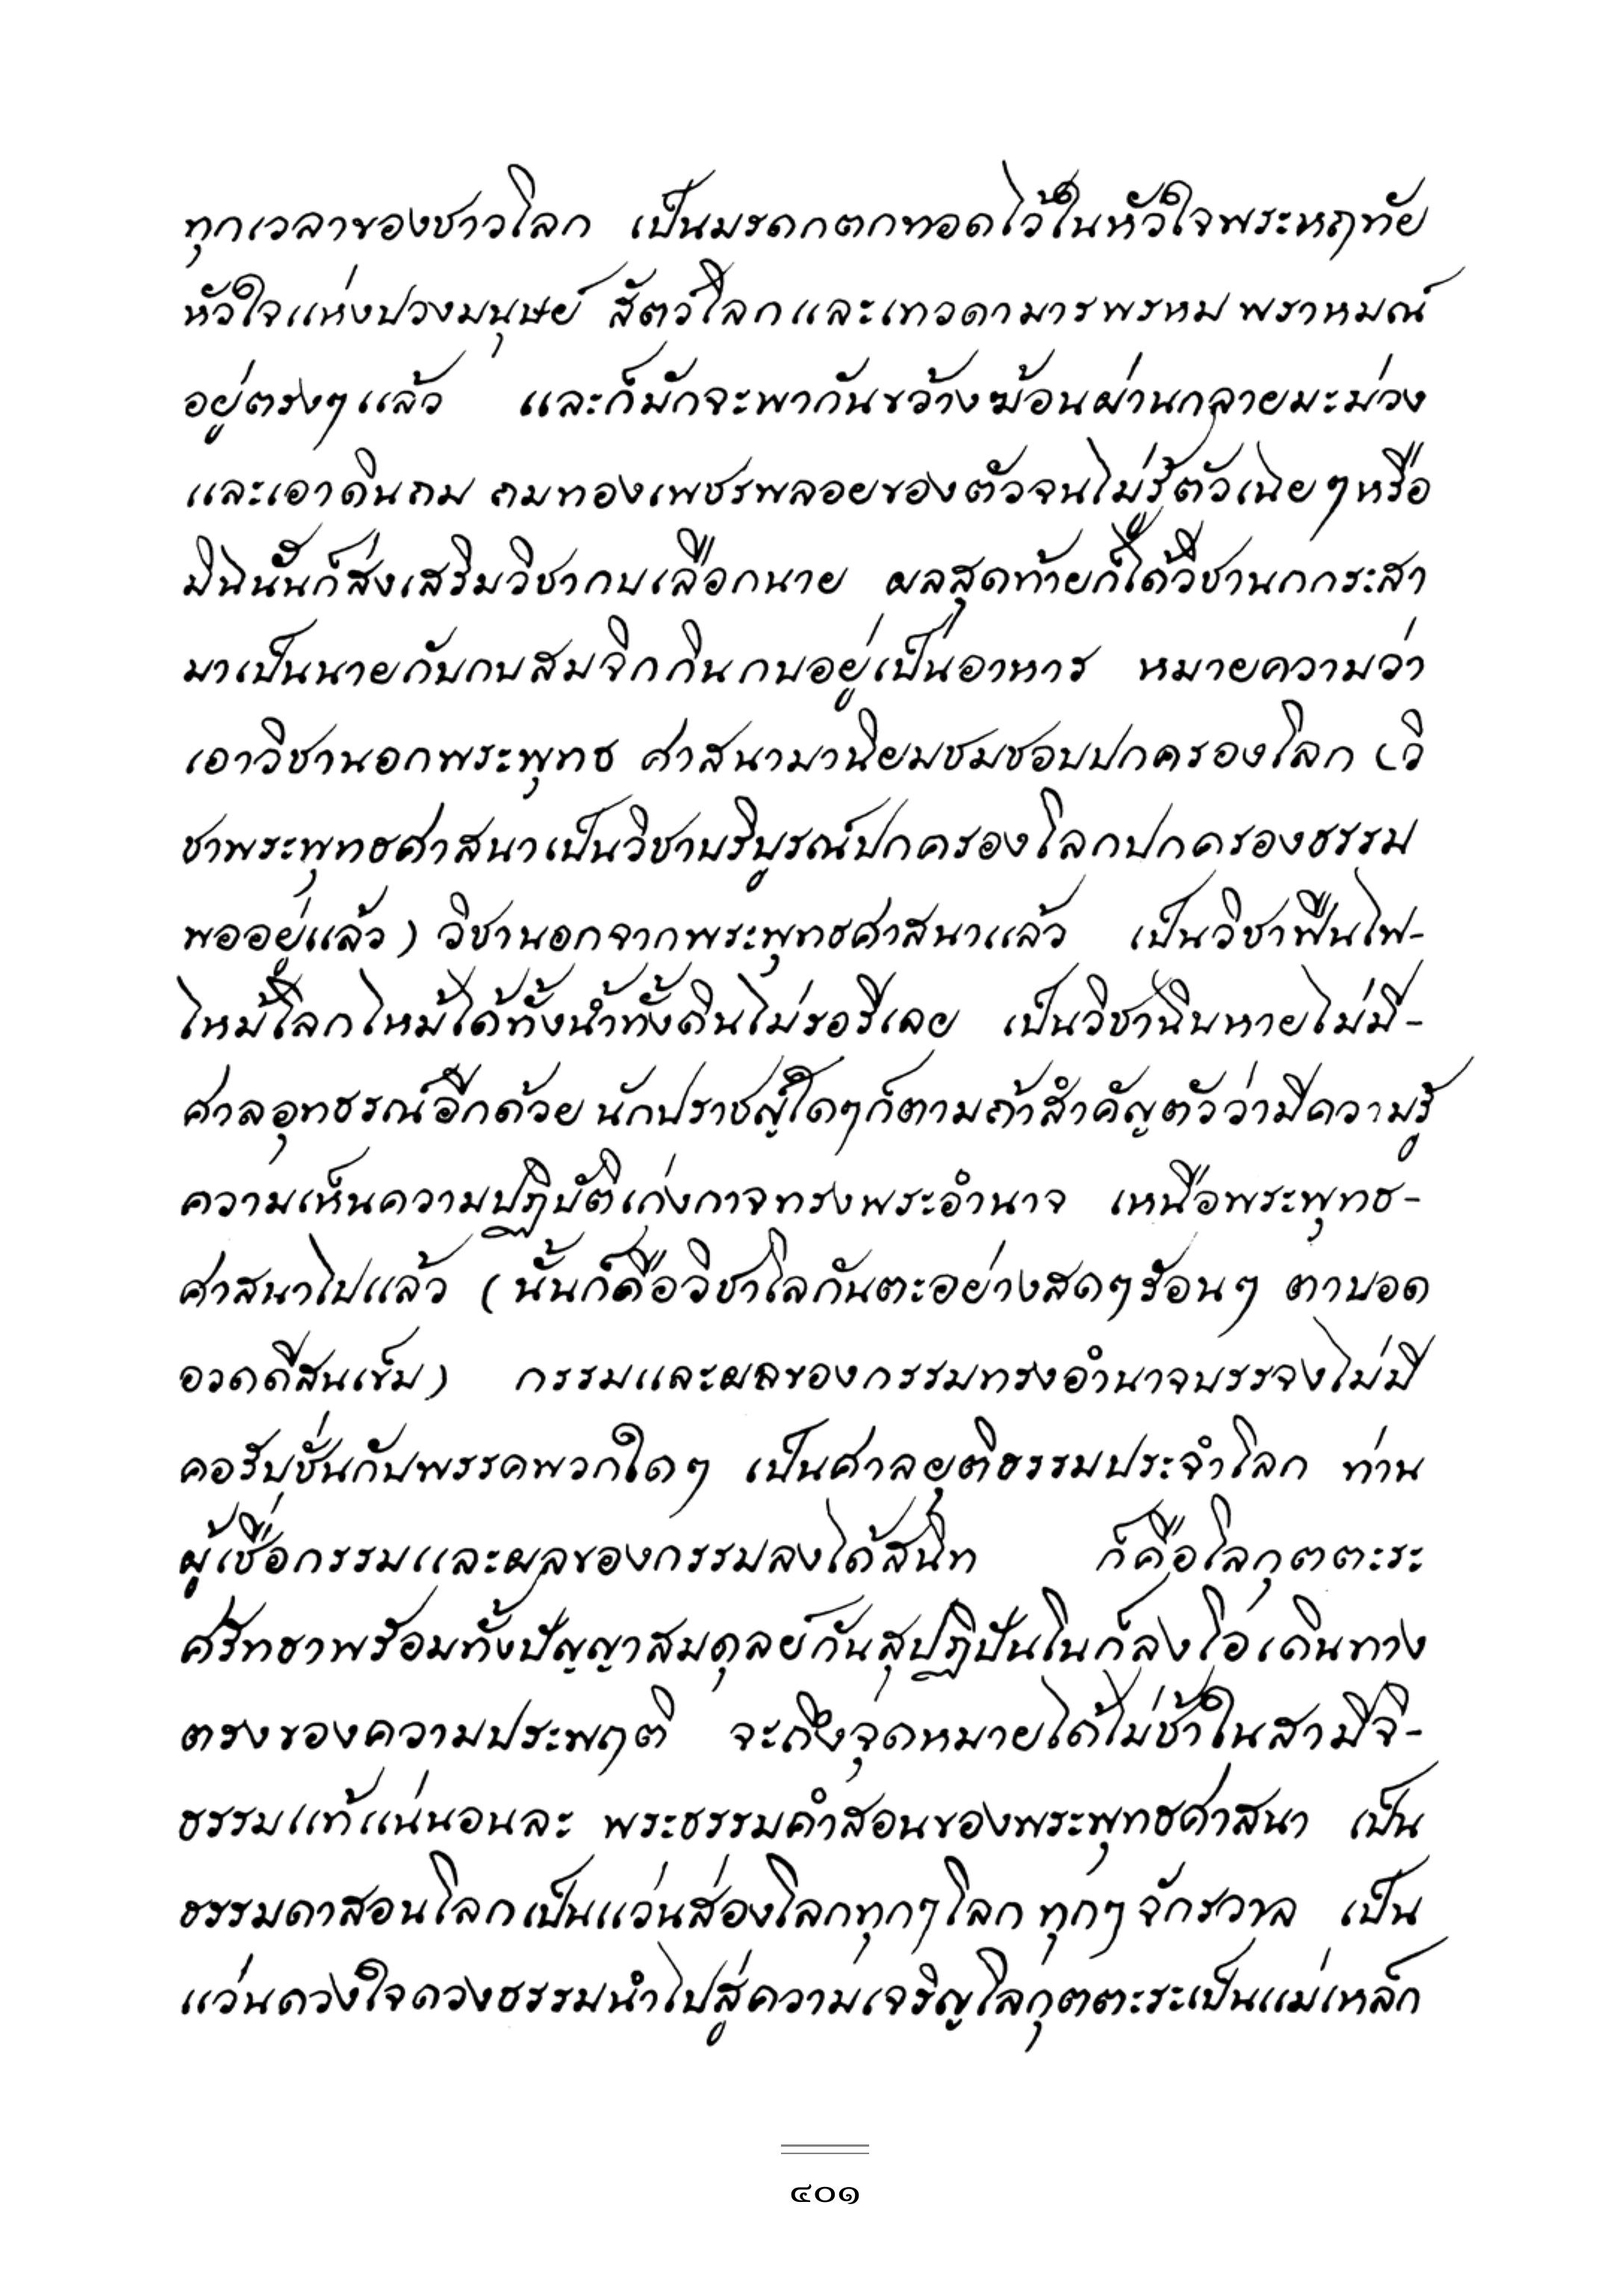 ทุกเวลาของชาวโลก เป็นมรดกตกทอดไว้ในหัวใจพระหฤทัย
หัวใจแห่งปวงมนุษย์ สัตว์โลกและเทวดามารพรหมพราหมณ์
อยู่ตรงๆแล้ว และก็มักจะพากันขว้างฆ้อนผ่านกลายมะม่วง
และเอาดินถม ถมทองเพชรพลอยของตัวจนไม่รู้ตัวเนยๆหรือ
มินนั้นก็ส่งเสริมวิชากบเลือกนาย ผลสุดท้ายก็ได้วิชานกกระสา
มาเป็นนายกับกบสมจิกกินกบอยู่เป็นอาหาร หมายความว่า
เอาวิชานอกพระพุทธ ศาสนามานิยมชมชอบปกครองโลก (วิ
ชาพระพุทธศาสนาเป็นวิชาบริบูรณ์ปกครองโลกปกครองธรรม
พออยู่แล้ว) วิชานอกจากพระพุทธศาสนาแล้ว เป็นวิชาฟืนไฟ-
ไหม้โลกไหม้ได้ทั้งน้ำทั้งดินไม่รอรีเลย เป็นวิชาฉิบหายไม่มี-
ศาลอุทธรณ์อีกด้วย นักปราชญ์ใดๆก็ตามถ้าสำคัญตัวว่ามีความรู้
ความเห็นความปฏิบัติเก่งกาจทรงพระอำนาจ เหนือพระพุทธ-
ศาสนาไปแล้ว (นั้นก็คือวิชาโลกันตะอย่างสดๆร้อนๆ ตาบอด
อวดดีสนเข็ม) กรรมและผลของกรรมทรงอำนาจบรรจงไม่มี
คอรัปชั่นกับพรรคพวกใดๆ เป็นศาลยุติธรรมประจำโลก ท่าน
ผู้เชื่อกรรมและผลของกรรมลงได้สนิท ก็คือโลกุตตะระ
ศรัทธาพร้อมทั้งปัญญาสมดุลย์กันสุปฏิปันโนก็ลงโอเดินทาง
ตรงของความประพฤติ จะถึงจุดหมายได้ไม่ช้าในสามีจิ-
ธรรมแท้แน่นอนละ พระธรรมคำสอนของพระพุทธศาสนา เป็น
ธรรมดาสอนโลกเป็นแว่นส่องโลกทุกๆโลก ทุกๆ จักรวาล เป็น
แว่นดวงใจดวงธรรมนำไปสู่ความเจริญโลกุตตะระเป็นแม่เหล็ก
๔๐๑